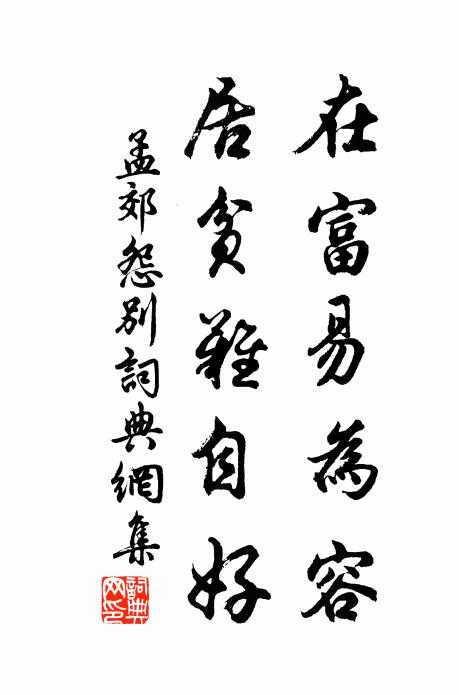 在富易為容
居貧難自好
孟郊怨別詞典網集
詞典
网印